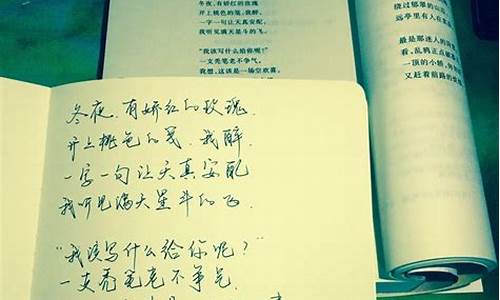 冬夜,有娇红的玫瑰
开上桃色的笺,我醉,
一字一句让天真安配,
我听见满天星斗的飞。
“我该写什么给你呢?”
一支秃笔老不争气,
我想,这该是一场空欢喜。
绕过郁翠的山
远亭里有人在
最是那迷人的
看,乱鸦正点破
一顶的小轿,
又赶着前路的
冬夜,有娇红的玫瑰
开上桃色的笺,我醉
一字一句让天真安配
我听见满天星斗的飞
“我该写什么给你呢?”
一支秃笔老不争气